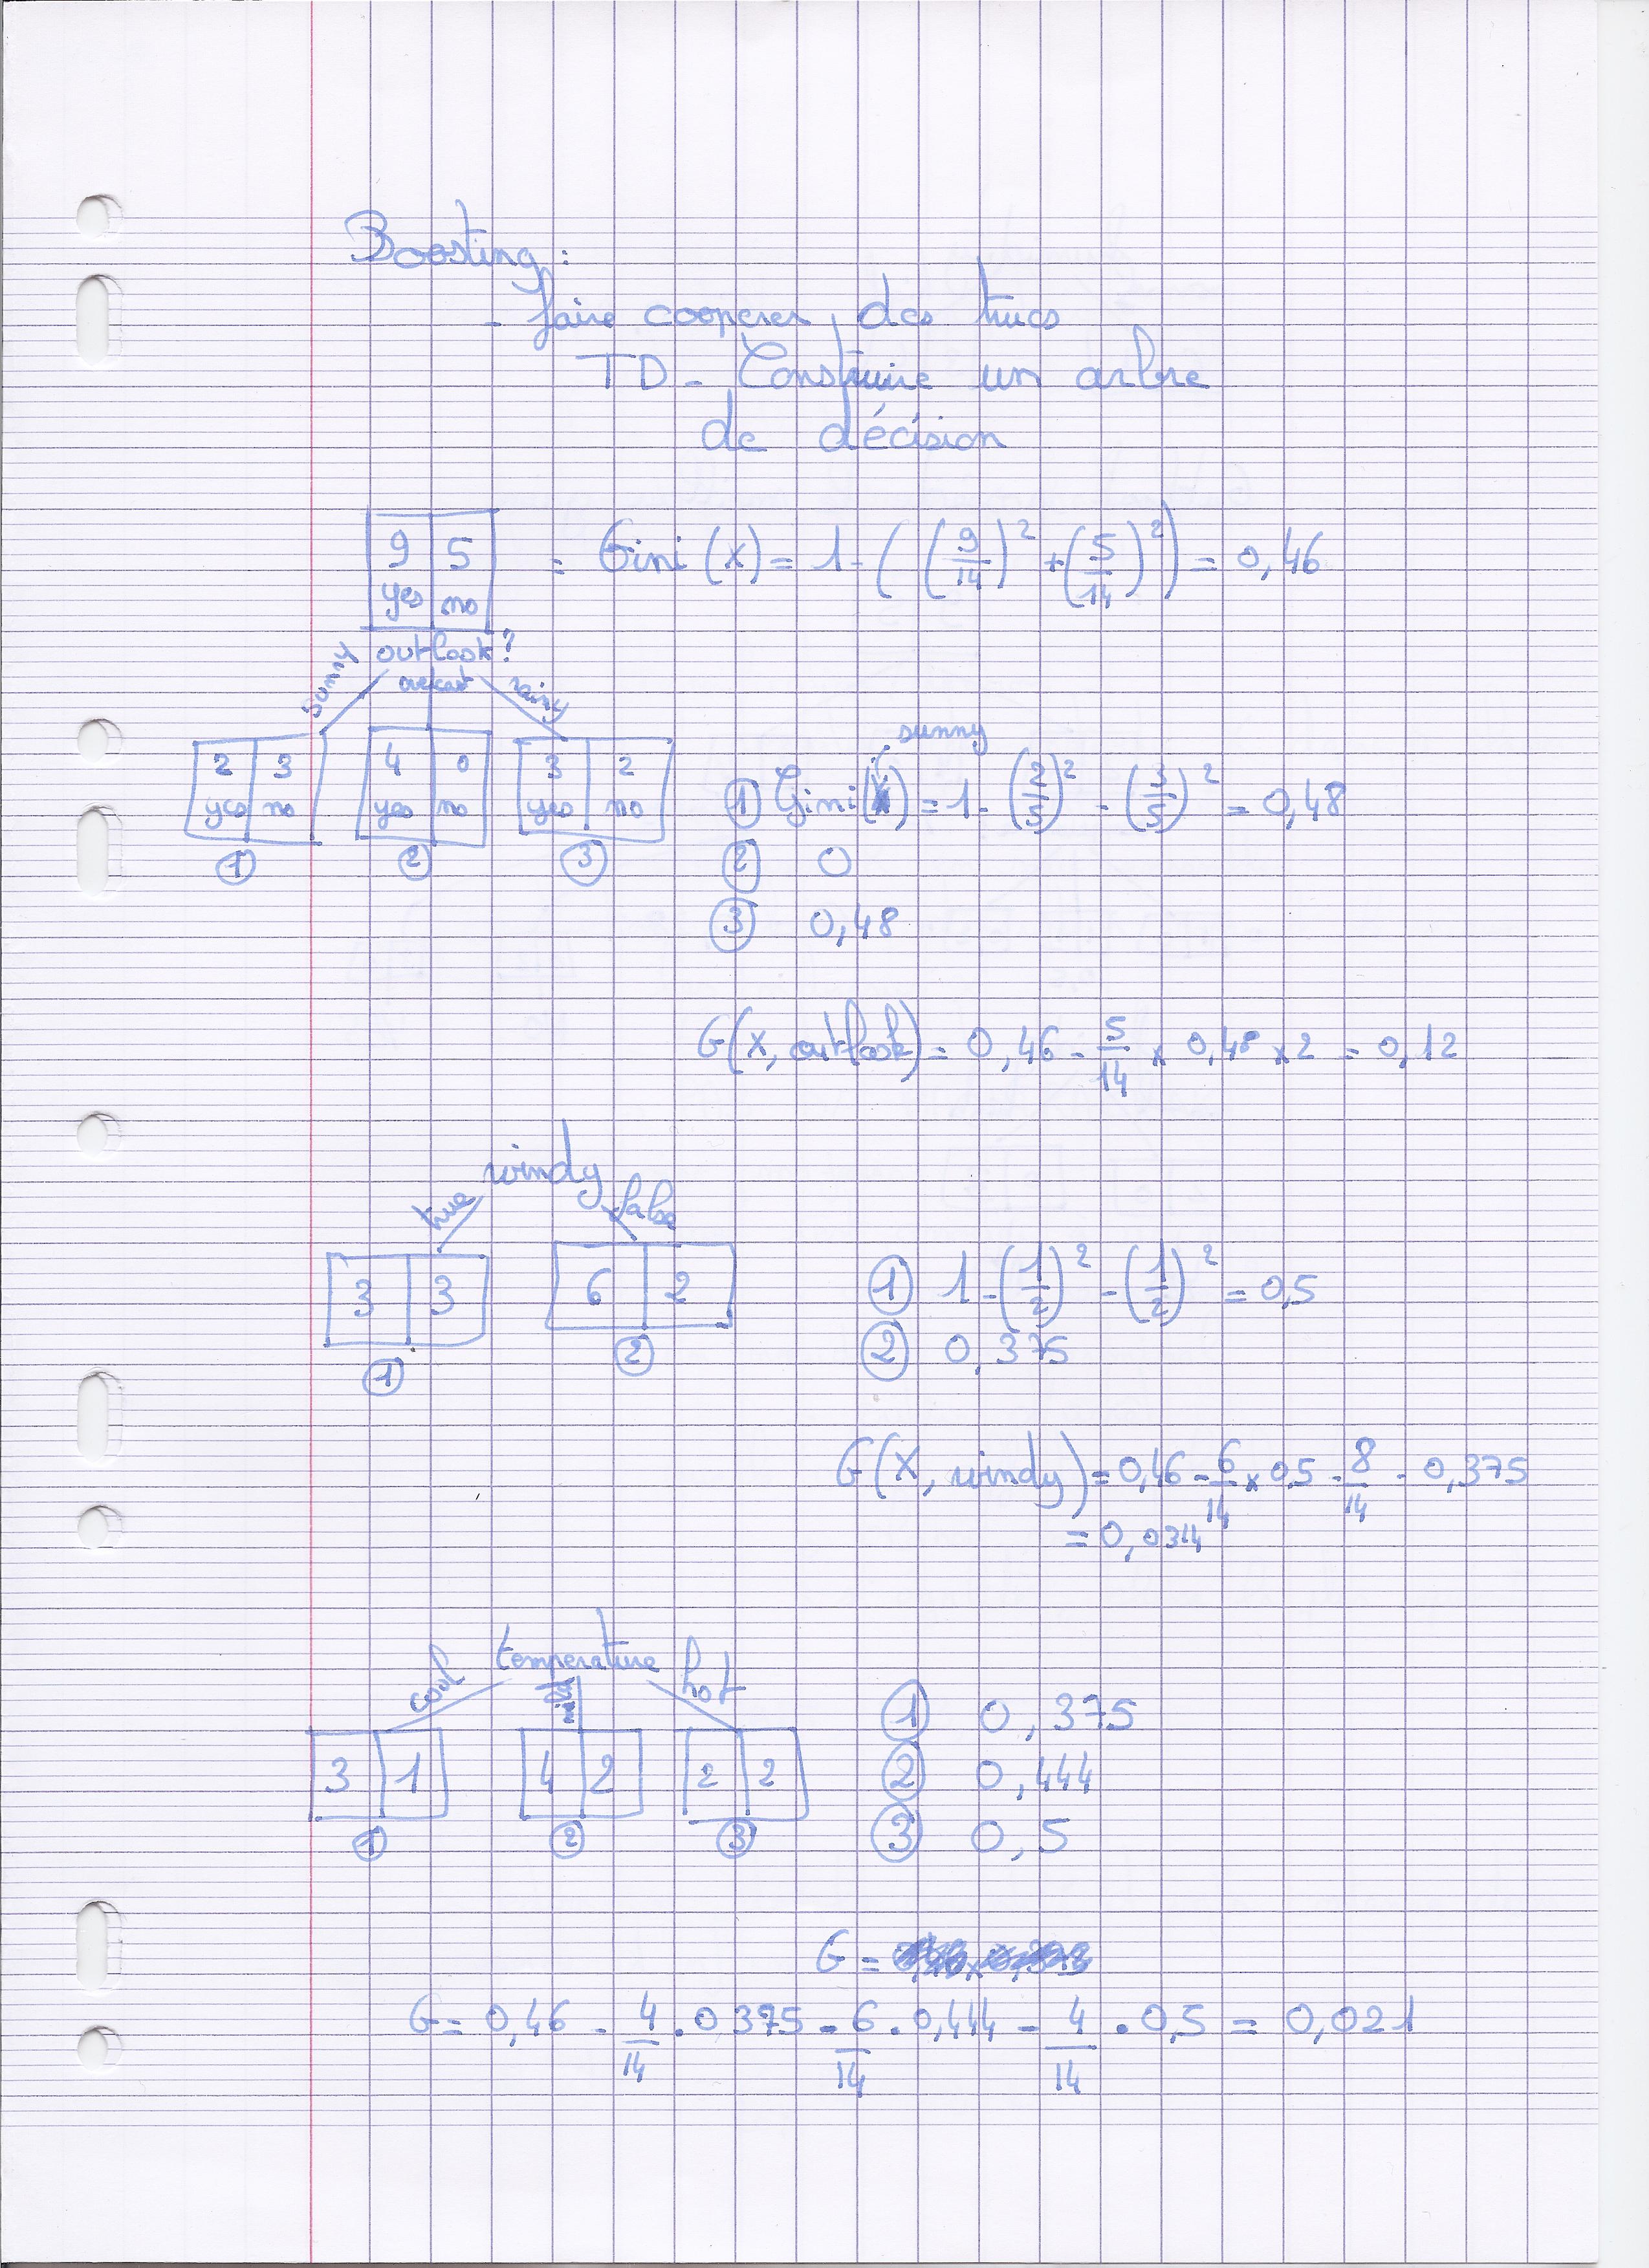 Boosting :
- faire cooperer des trucs
TD - Construire un arbre
de décision
9 yes | 5 no = Gini (X) = 1 - ( (9/14)² + (5/14)² ) = 0,46
outlook ?
sunny overcast rainy
2 yes | 3 no 4 yes | 0 no 3 yes | 2 no
① ② ③
sunny
① Gini( ) = 1 - (2/5)² - (3/5)² = 0,48
② 0
③ 0,48
G(X, outlook) = 0,46 - 5/14 × 0,48 × 2 = 0,12
windy
true false
3 | 3 6 | 2
① ②
① 1 - (1/2)² - (1/2)² = 0,5
② 0,375
G(X, windy) = 0,46 - 6/14 × 0,5 - 8/14 - 0,375
= 0,0314
temperature
cool mild hot
3 | 1 4 | 2 2 | 2
① ② ③
① 0,375
② 0,444
③ 0,5
G =
G = 0,46 - 4/14 . 0 375 - 6/14 . 0,444 - 4/14 . 0,5 = 0,021